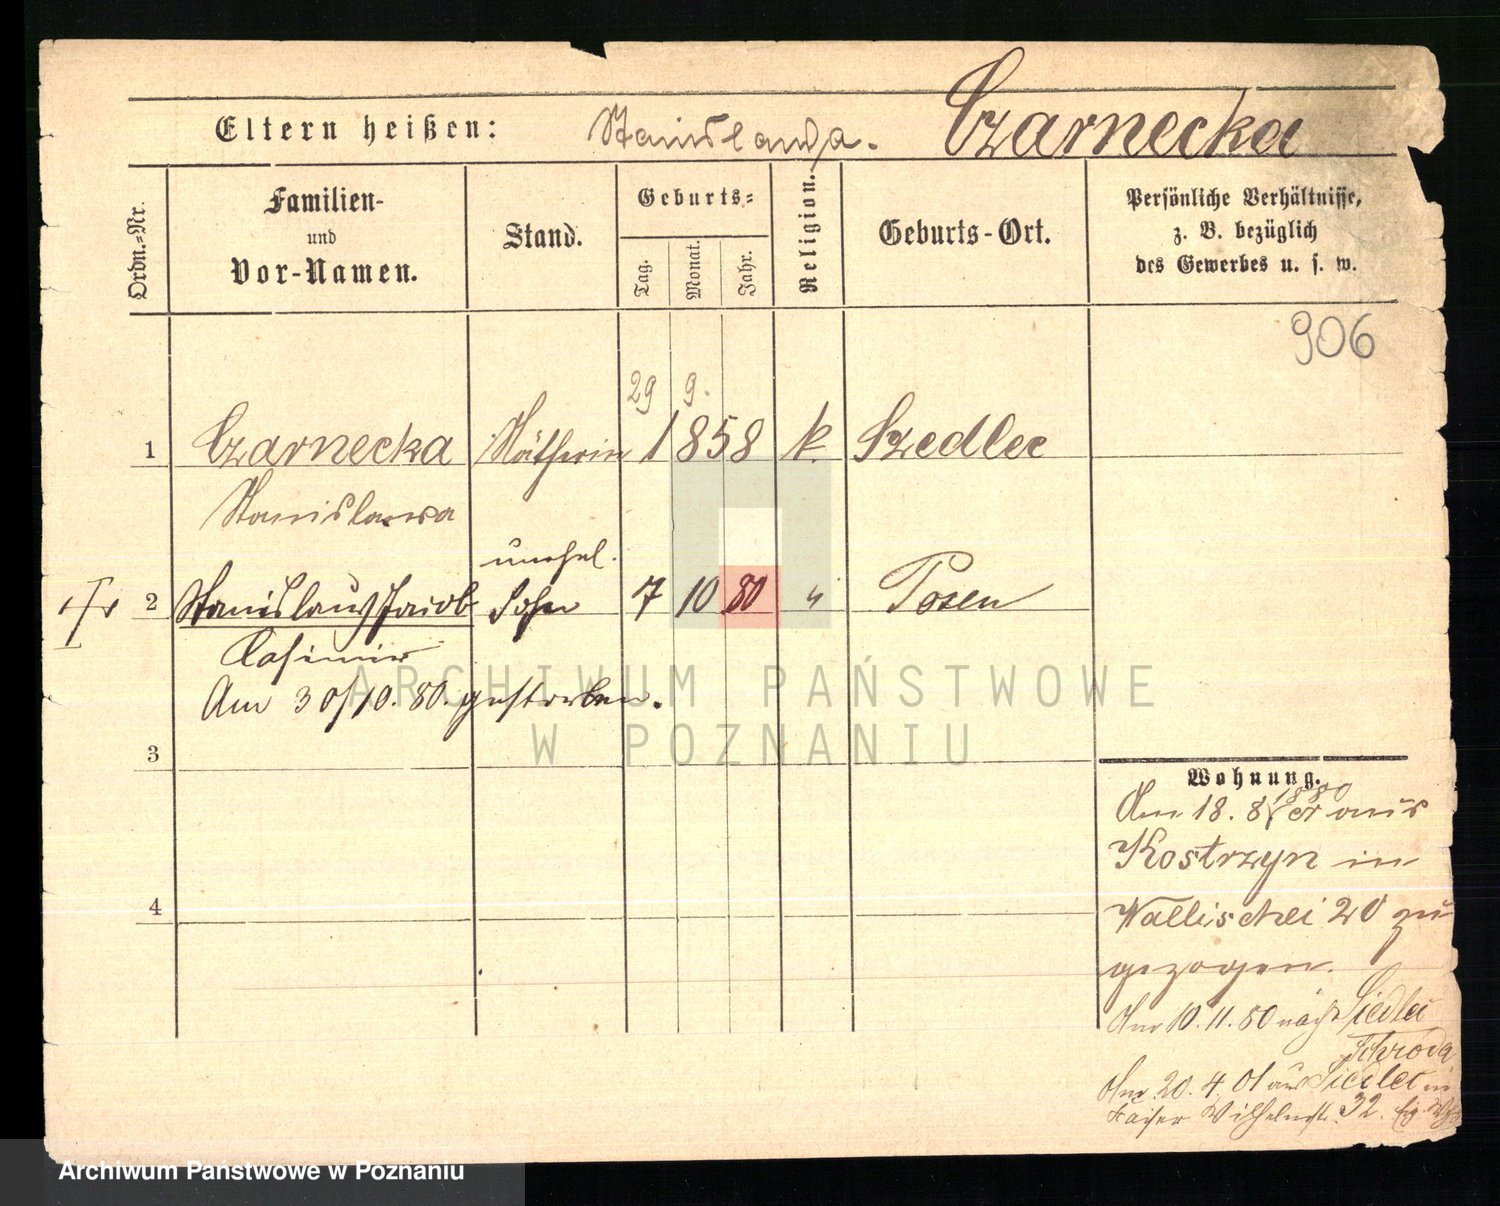 Eltern heißen: Stanislawa. Czarnecka
Ordn.-Nr.
Familien-
und
Vor-Namen.
Stand.
Geburts-
Tag.
Monat.
Jahr.
Religion.
Geburts-Ort.
Persönliche Verhältnisse,
z. B. bezüglich
des Gewerbes u. s. w.
906
29 9.
1 Czarnecka Nätherin 1858 k. Szedlec
Stanislawa
unehel.
2 Stanislaus Jacob Sohn 7 10 80 " Posen
Casimir
Am 30/10. 80. gestorben.
3
4
Wohnung.
1880
Am 18. 8 er aus
Kostrzyn in
Wallischei 20 zu
gezogen.
Am 10. 11. 80 nach Siedlec
Schroda
Am 20. 4. 01 aus Siedlec in
Kaiser Wilhelmstr. 32.
ARCHIWUM PAŃSTWOWE
W POZNANIU
Archiwum Państwowe w Poznaniu